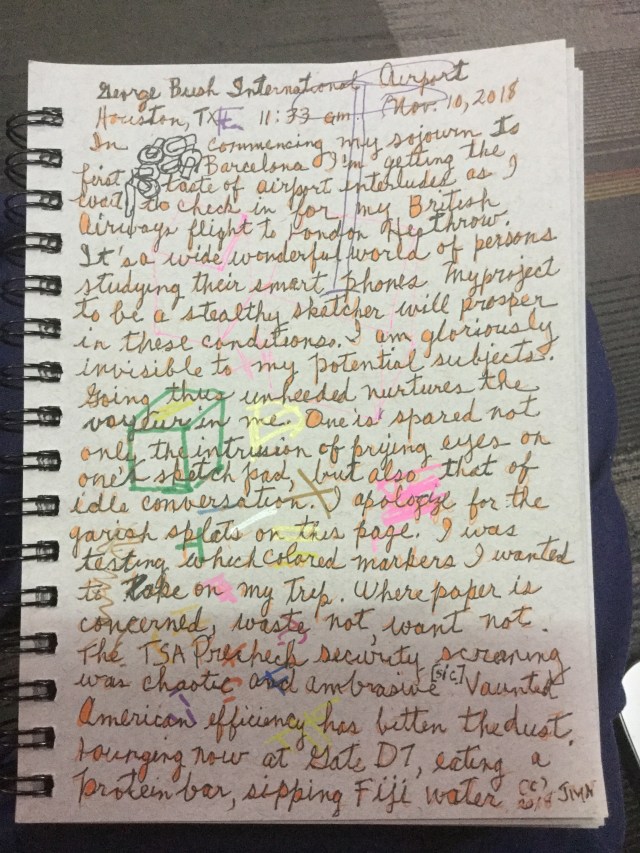 George Bush International Airport
Houston, TX 11:33 am Nov. 10, 2018
In commencing my sojourn to
Barcelona I'm getting the
first taste of airport interludes as I
wait to check in for my British
Airways flight to London Heathrow.
It's a wide wonderful world of persons
studying their smart phones. My project
to be a stealthy sketcher will prosper
in these conditions. I am gloriously
invisible to my potential subjects.
Going thus unheeded nurtures the
voyeur in me. One is spared not
only the intrusion of prying eyes on
one's sketch pad, but also that of
idle conversation. I apologize for the
garish splats on this page. I was
testing which colored markers I wanted
to take on my trip. Where paper is
concerned, waste not, want not.
The TSA Precheck security screening
was chaotic and ambrasive [sic] Vaunted
American efficiency has bitten the dust.
Lounging now at Gate D7, eating a
protein bar, sipping Fiji water (c)
2018 JMN